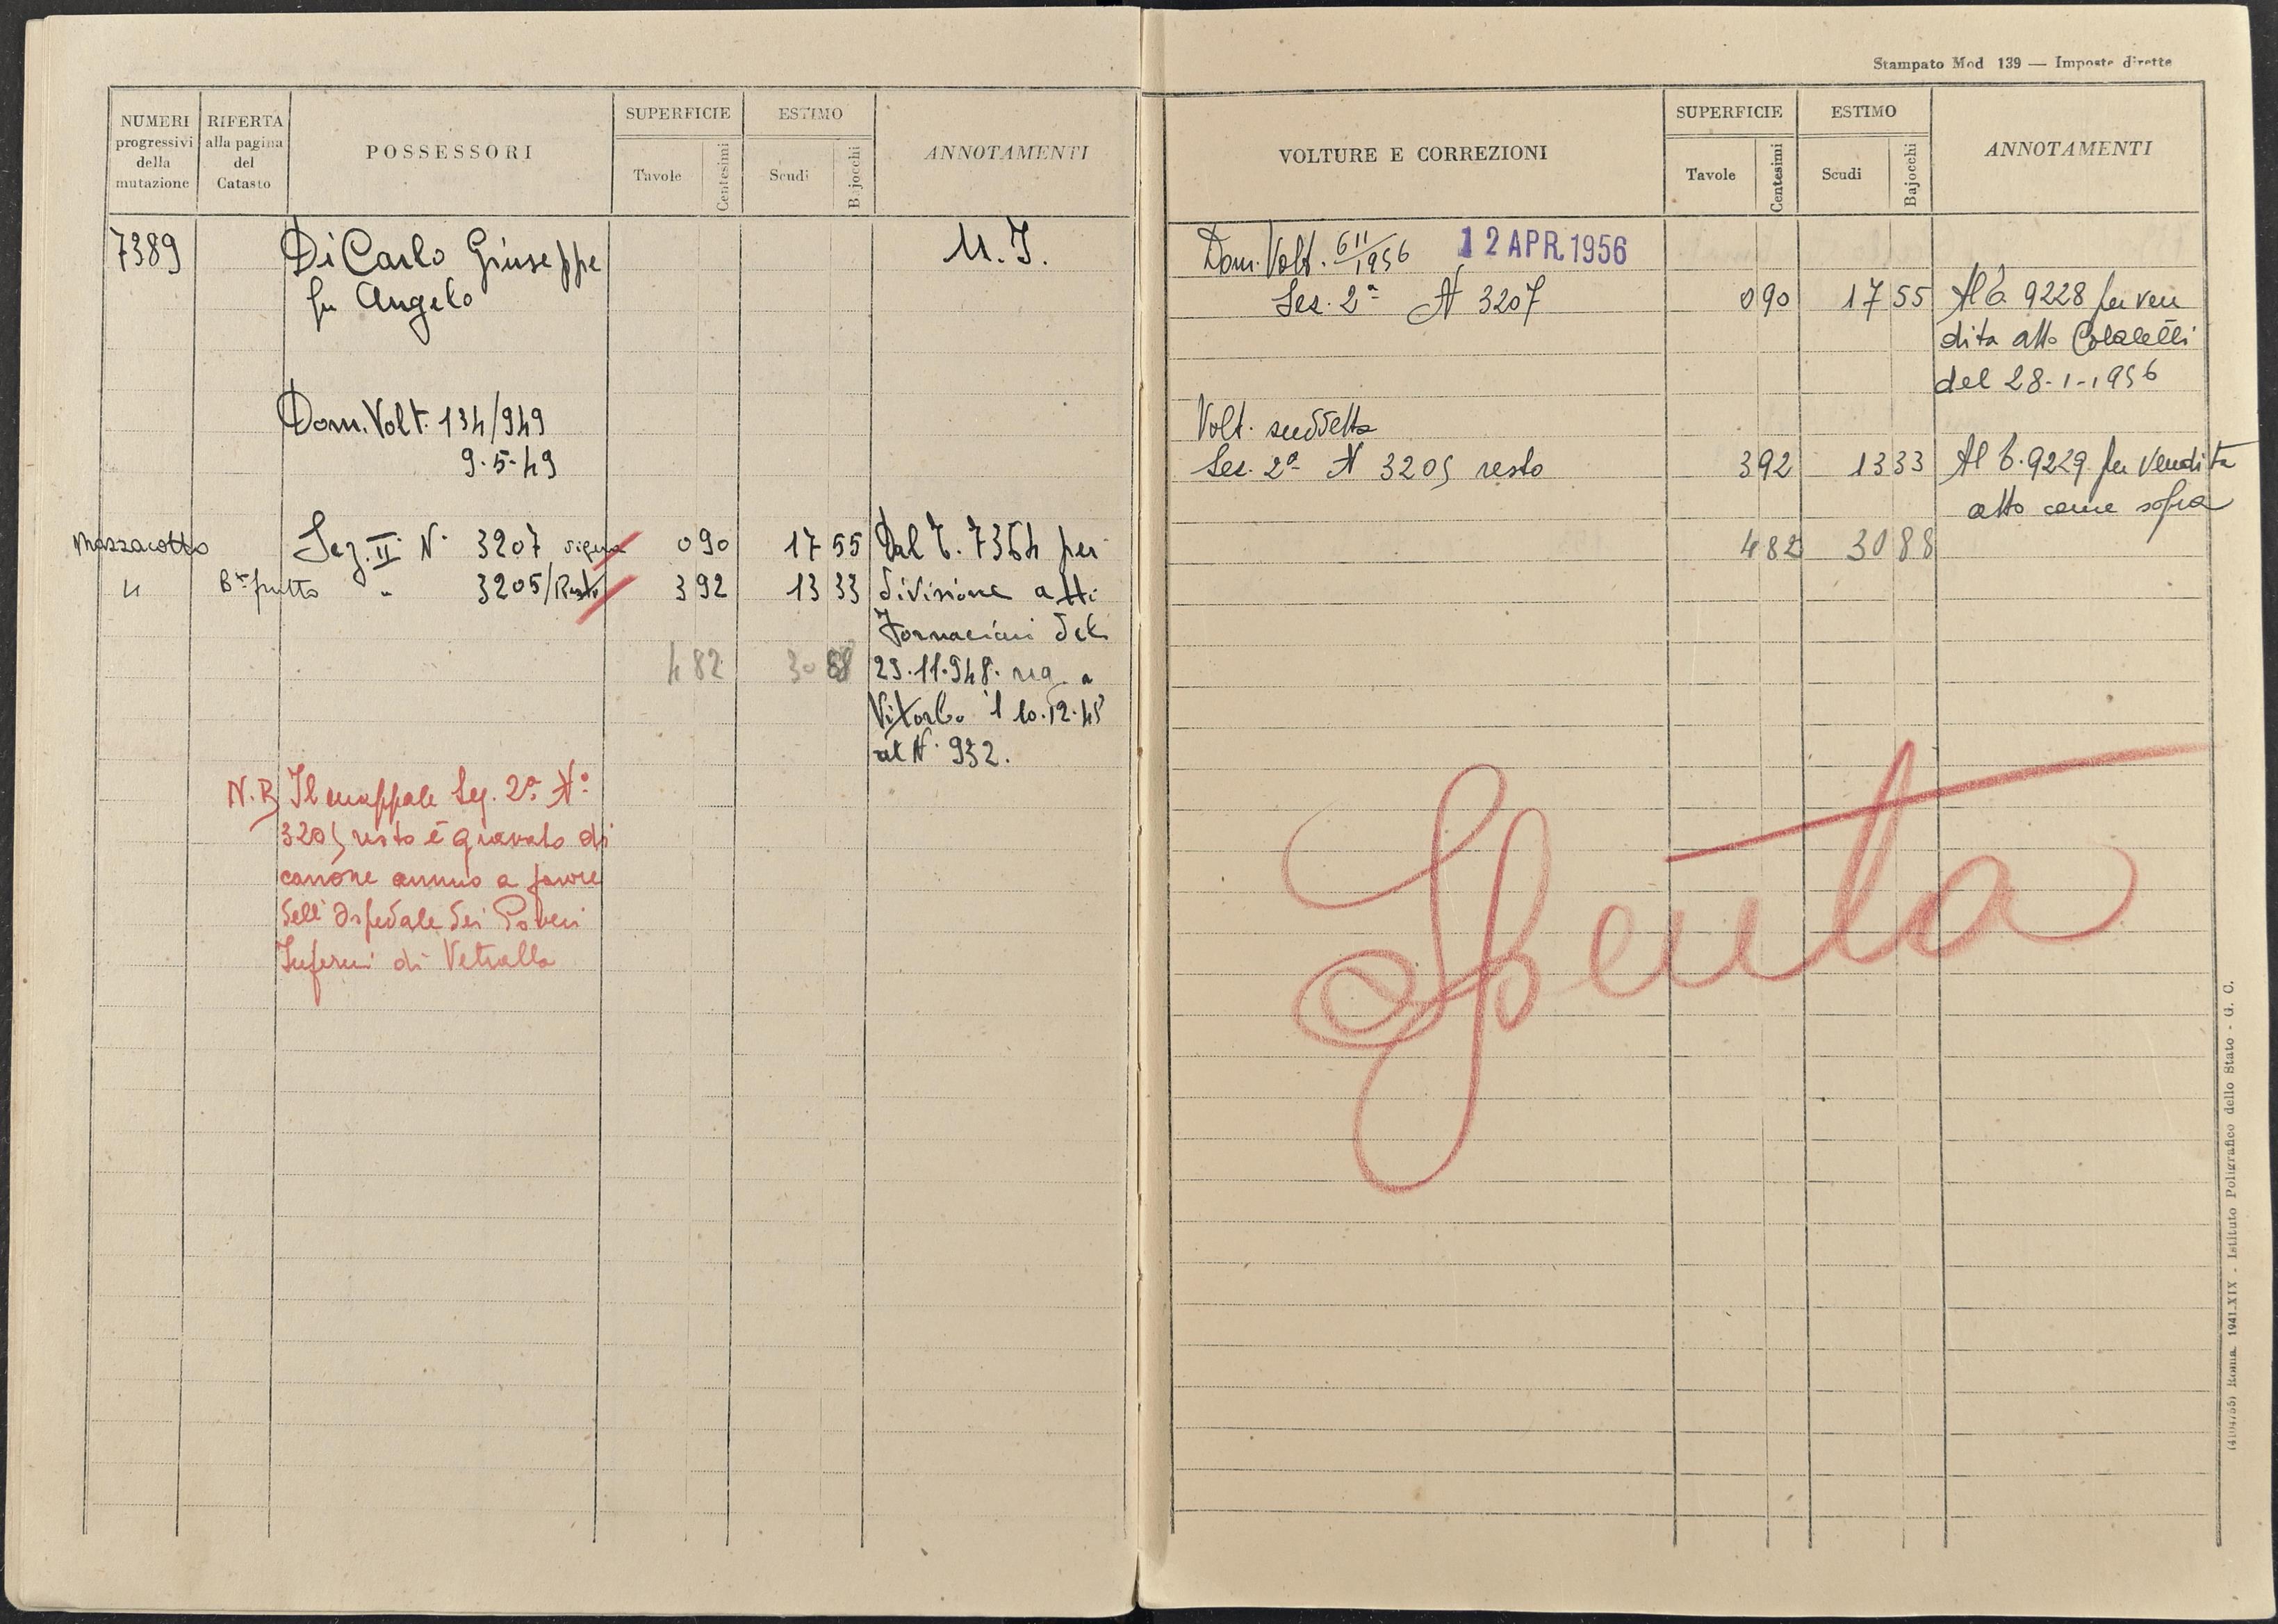 NUMERI
progressivi
della
mutazione
RIFERTA
alla pagina
del
Catasto
POSSESSORI
SUPERFICIE
Tavole
Centesimi
ESTIMO
Scudi
Bajocchi
ANNOTAMENTI
7389
Di Carlo Giuseppe
fu Angelo
U. I.
Dom. Volt. 134/949
9.5.49
Mazzacotto Sez. II N. 3207 vigna 0 90 17 55 Dal T. 7364 per
" B.to frutto " 3205/Resto 3 92 13 33 divisione atti
Fornaciari del
4 82 30 88 29.11.948. reg. a
Viterbo il 10.12.48
al N. 932.
N.B. Il mappale Sez. 2ª N°
3205 resto è gravato di
canone annuo a favore
dell'Ospedale dei Poveri
Infermi di Vetralla
Stampato Mod 139 — Imposte dirette
VOLTURE E CORREZIONI
SUPERFICIE
Tavole
Centesimi
ESTIMO
Scudi
Bajocchi
ANNOTAMENTI
Dom. Volt. 611/1956 12 APR. 1956
Sez. 2ª N 3207 0 90 17 55 Al T. 9228 per ven
dita atto Colalelli
del 28-1-1956
Volt. suddetta
Sez. 2ª N 3205 resto 3 92 13 33 Al T. 9229 per vendita
atto come sopra
4 82 30 88
Spenta
Roma, 1941-XIX - Istituto Poligrafico dello Stato - G. C.